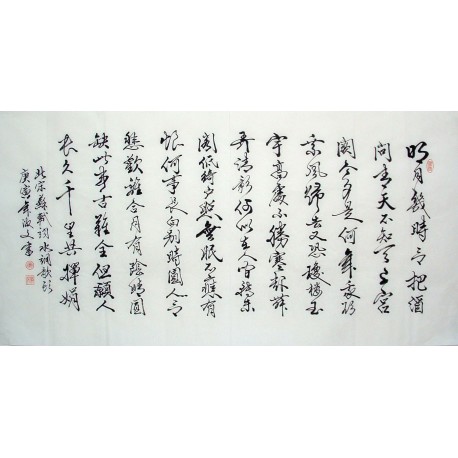 明月幾時有把酒
問青天不知天上宮
闕今夕是何年我欲
乘風歸去又恐瓊樓玉
宇高處不勝寒起舞
弄清影何似在人間轉朱
閣低綺户照無眠不應有
恨何事長向别時圓人有
悲歡離合月有陰晴圓
缺此事古難全但願人
長久千里共嬋娟
北宋蘇軾詞水調歌頭
庚寅年文書